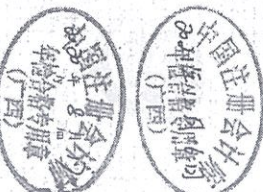 中国注册会计师
年检合格专用章
(广西)
中国注册会计师
年检合格专用章
(广西)